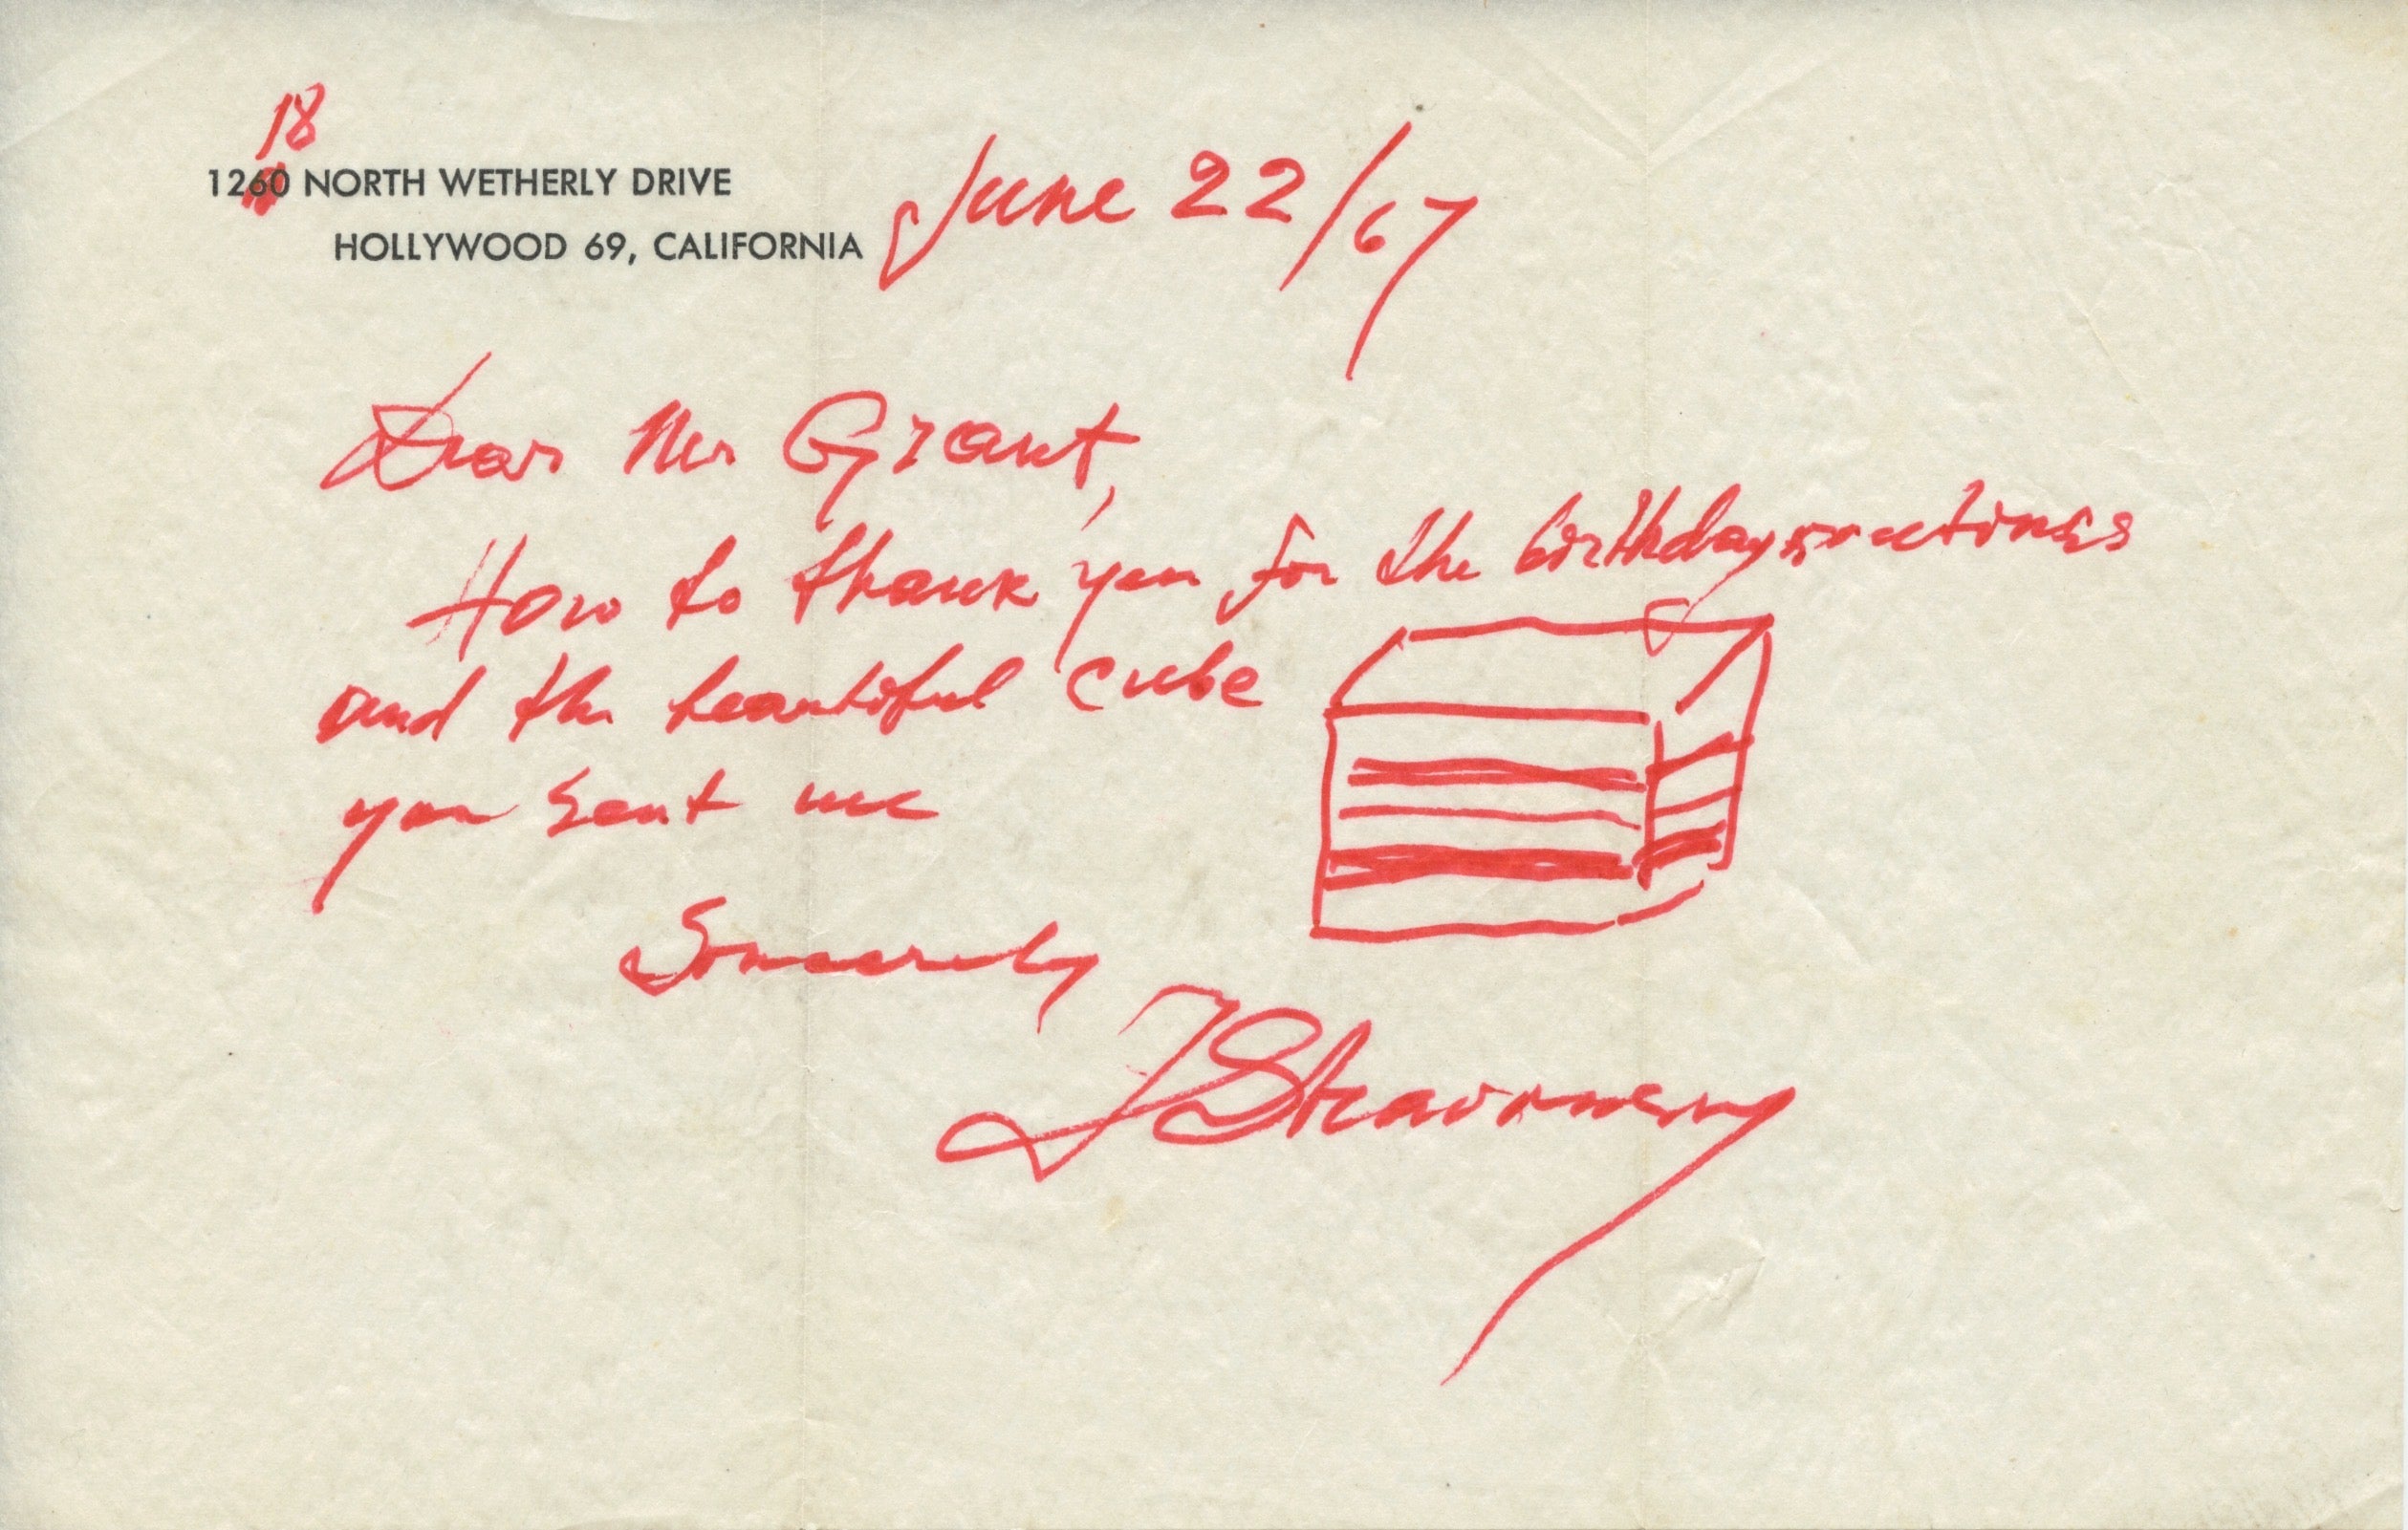 18
1260 NORTH WETHERLY DRIVE
HOLLYWOOD 69, CALIFORNIA
June 22/67
Dear Mr Grant,
How to thank you for the birthday greetings
and the beautiful cube
you sent me
Sincerely
I Stravinsky